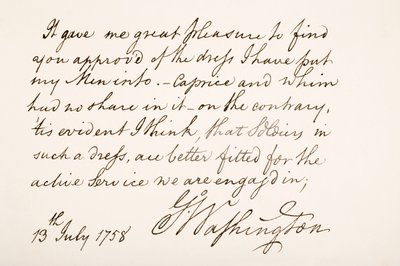 It gave me great pleasure to find
you approv'd of the dress I have put
my Men into. – Caprice and Whim
had no share in it – on the contrary,
'tis evident I think, that Soldiers in
such a dress, are better fitted for the
active Service we are engag'd in;
Go Washington
13th July 1758